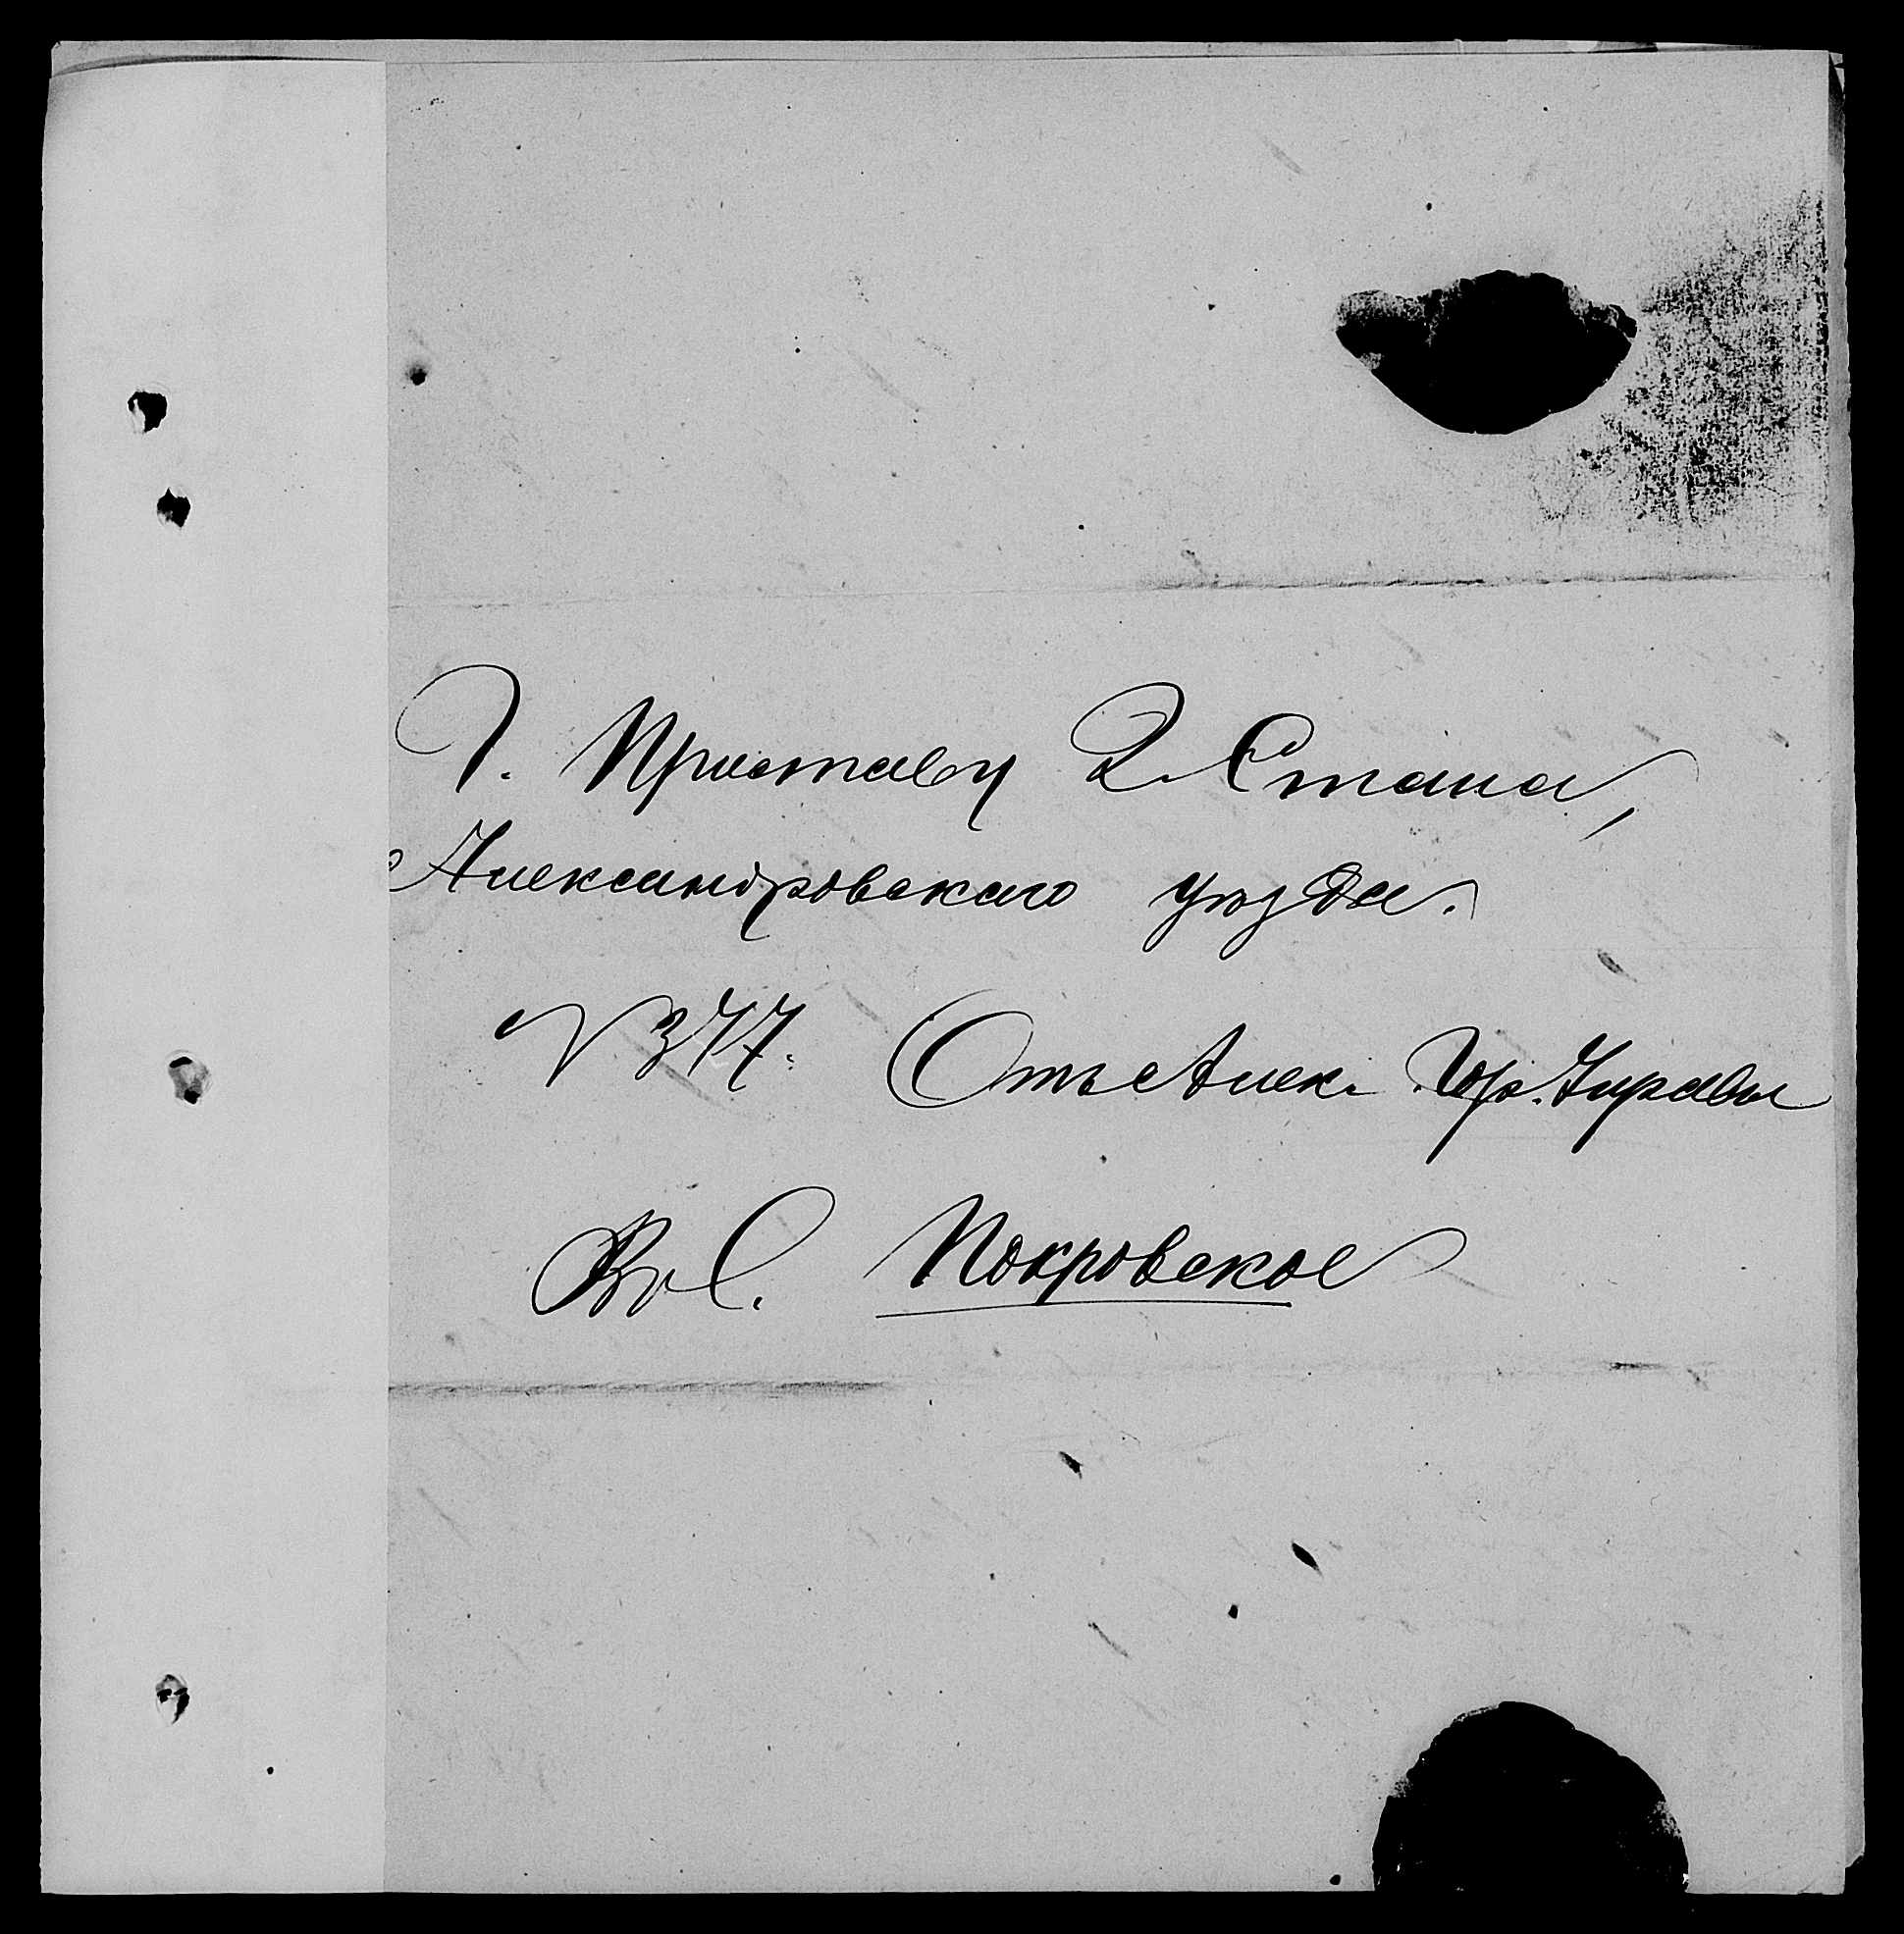 Г. Приставу 2 Стана,
Александровскаго уѣзда.
№ 377. Отъ Алек. Гор. Управы
Въ С. Покровское